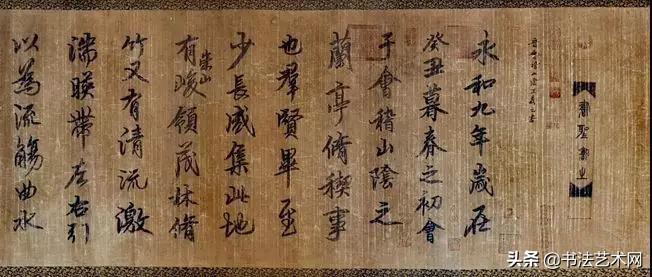 永和九年歲在
癸丑暮春之初會
于會稽山陰之
蘭亭脩稧事
也羣賢畢至
少長咸集此地
有崇山峻領茂林脩
竹又有清流激
湍暎帶左右引
以為流觴曲水
头条 @书法艺术网